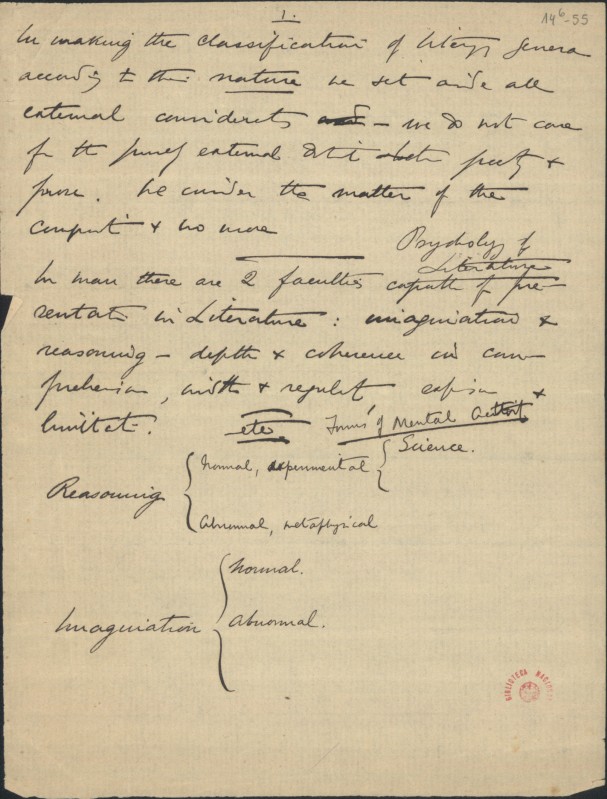 1.
14⁶-55
In making the classification of literary genera
according to their nature we set aside all
external considerations — we do not care
for the purely external poetry &
prose. We consider the matter of the
& no more
Psychology of
Literature
In man there are 2 faculties capable of pre-
sentation in Literature: imagination &
reasoning — depth & coherence in com-
prehension, width & regularity &
limitation.
etc
Forms of Mental Activity
Reasoning
Normal, experimental
Science.
Abnormal, metaphysical
Imagination
Normal.
Abnormal.
BIBLIOTECA NACIONAL